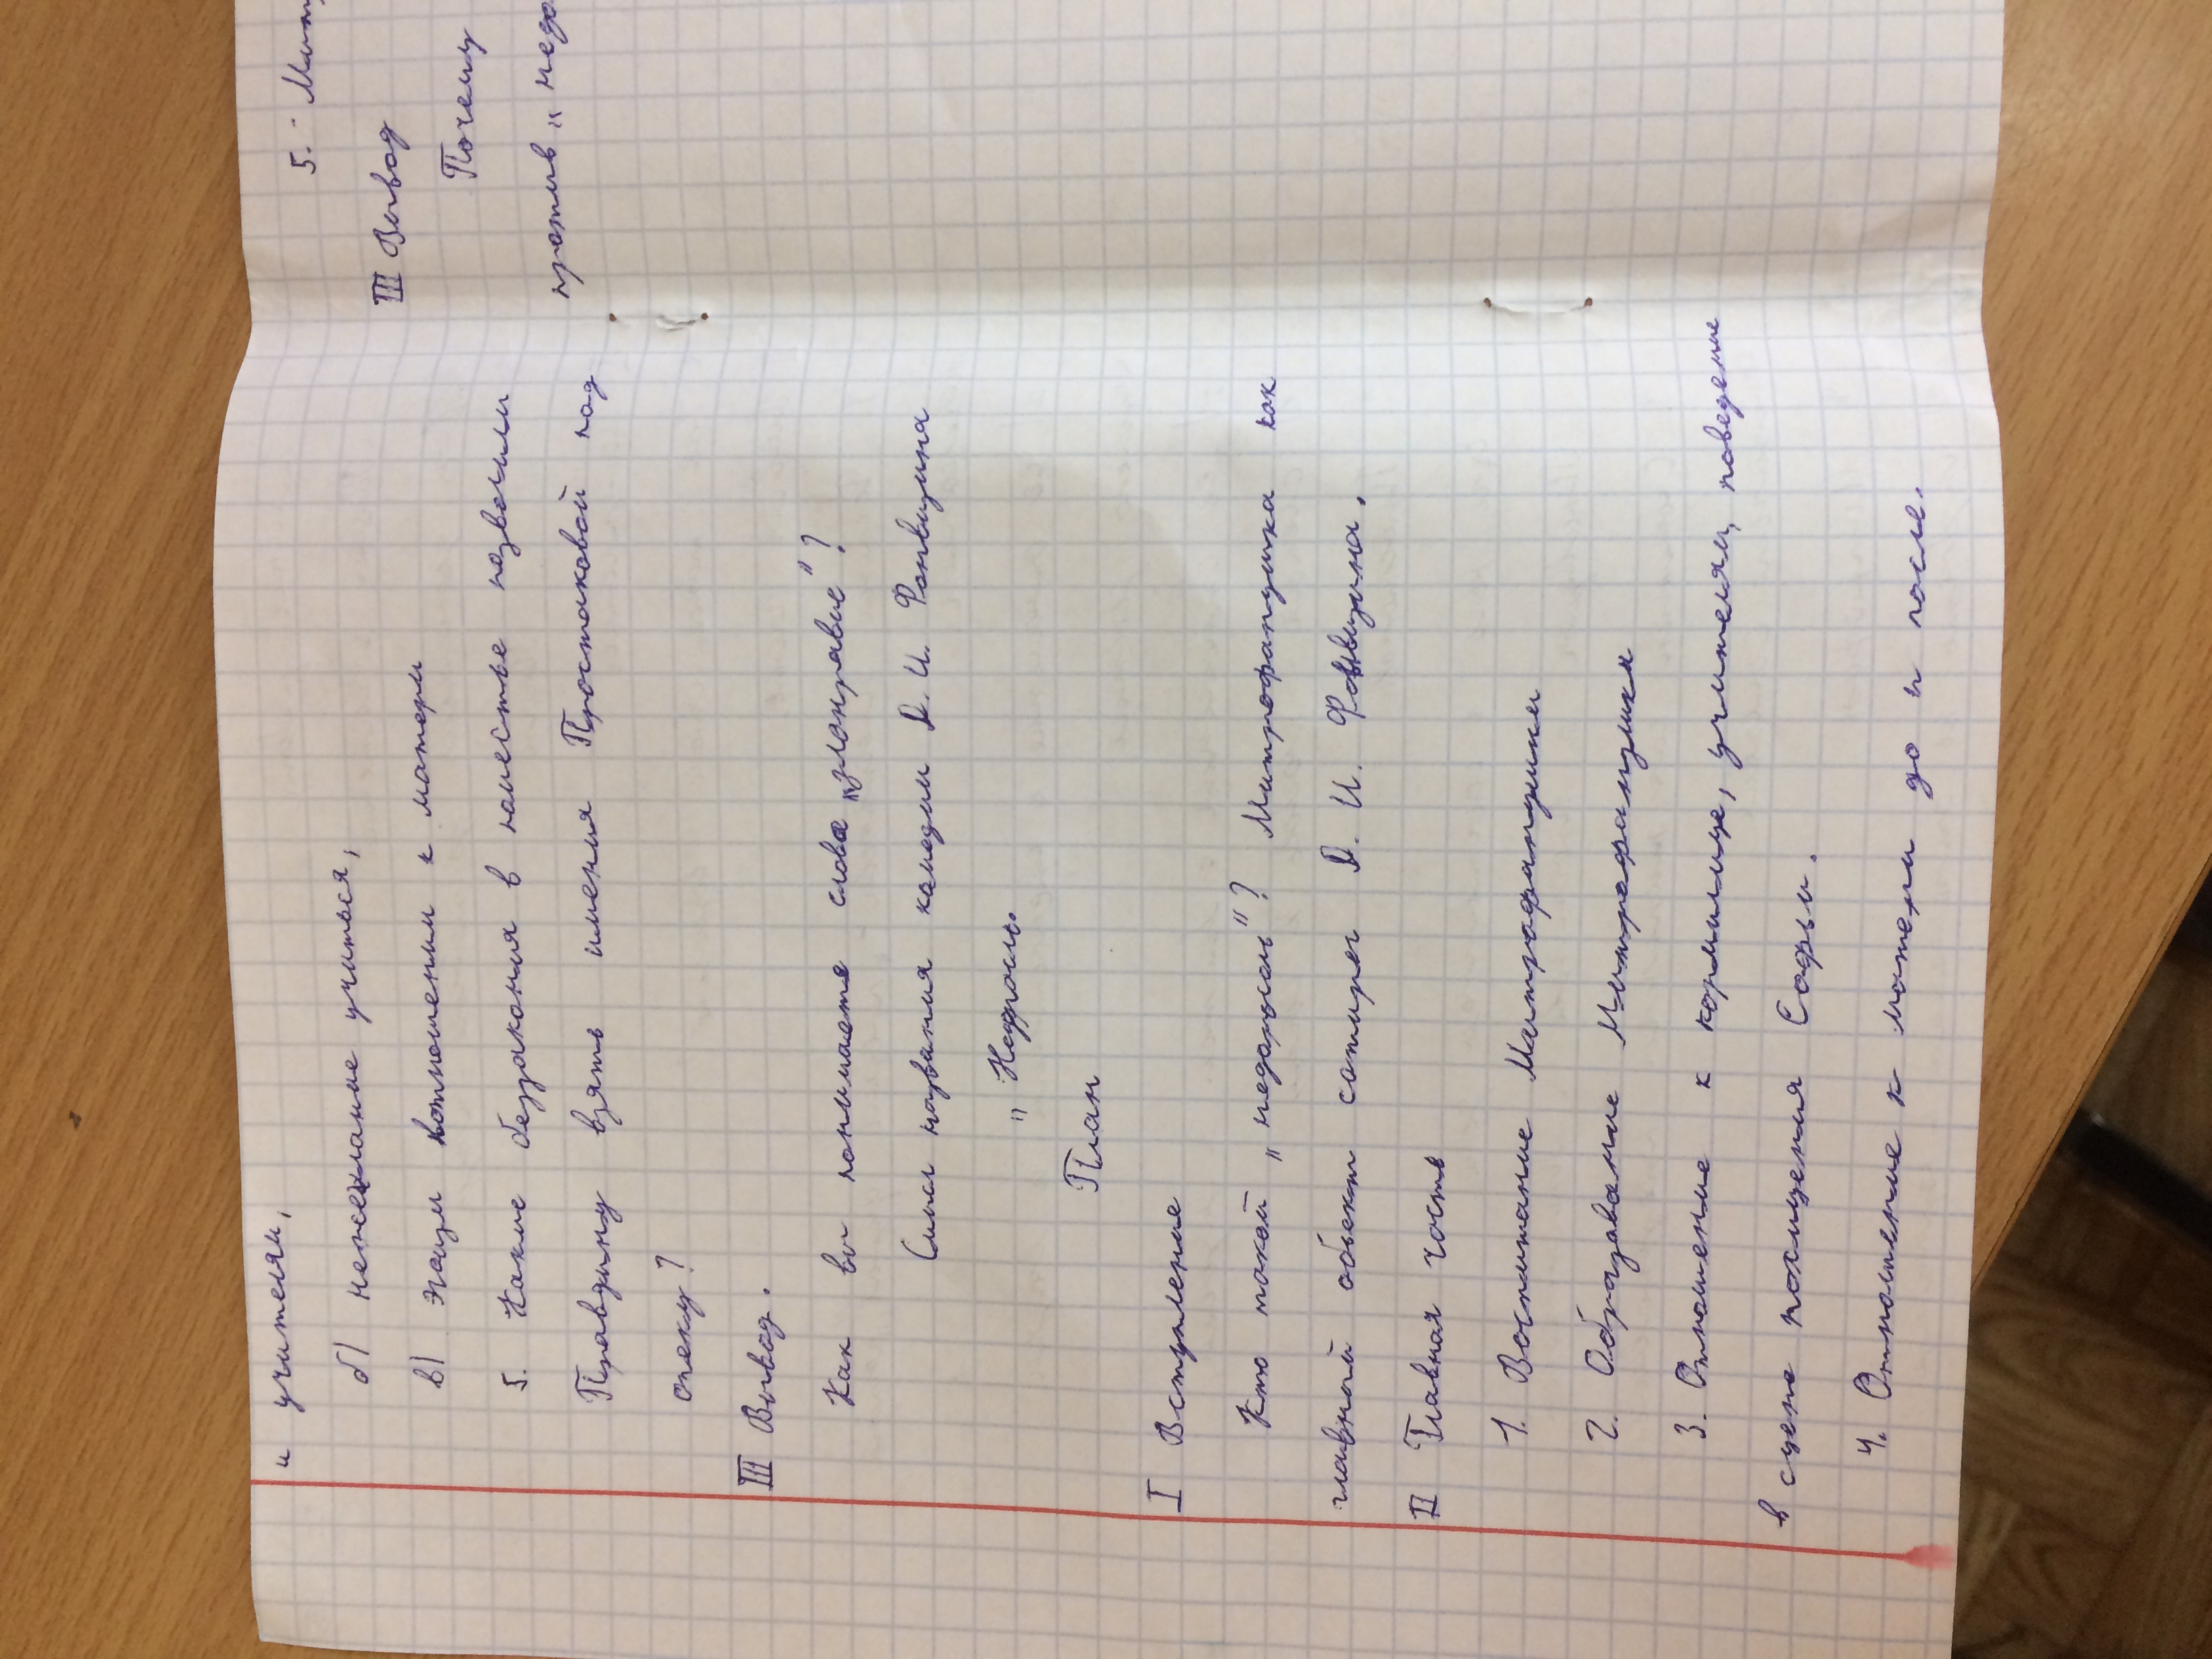 и учителям,
б) нежелание учиться,
в) эгоизм вотношении к матери
5. Какие беззакония в поместье позволили
Правдину взять имения Простаковой под
опеку?
III Вывод.
Как вы понимаете слова „злонравие"?
Смысл названия комедии Д. И. Фонвизина
„Недросль.
План
I Вступление
Кто такой „недоросль"? Митрофанушка как
главный объект сатиры Д. И. Фонвизина.
II Главная часть
1. Воспитание Митрофанушки
2. Образование Митрофанушки
3. Отношение к кормилице, учителям, поведение
в сцене похищения Софьи.
4. Отношение к матери до и после.
5. -
III Вывод
Почему
против „